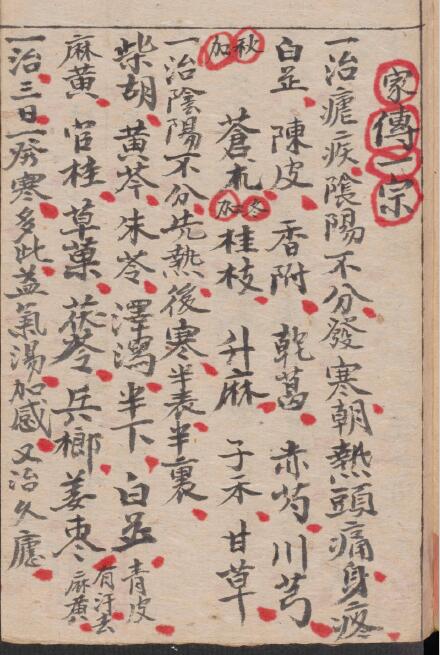 家傳一宗
一治瘧疾陰陽不分發寒朝熱頭痛身疼
白芷 陳皮 香附 乾葛 赤芍 川芎
秋加 蒼朮 冬加 桂枝 升麻 子禾 甘草
一治陰陽不分先熱後寒半表半裏
柴胡 黃芩 朱苓 澤瀉 半下 白芷 青皮
麻黃 官桂 草菓 茯苓 兵榔 姜枣 有汗去麻黃
一治三日一發寒多此益氣湯加感又治久瘧